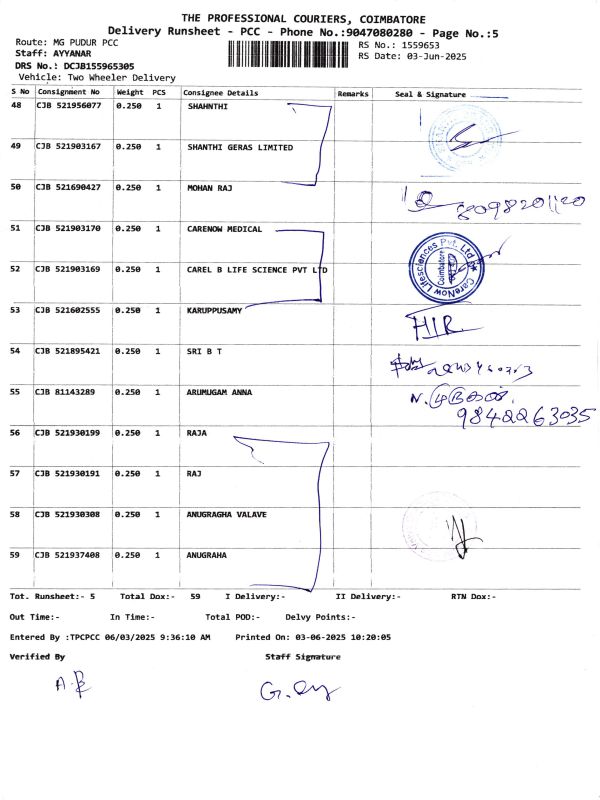 THE PROFESSIONAL COURIERS, COIMBATORE
Delivery Runsheet - PCC - Phone No.:9047080280 - Page No.:5
Route: MG PUDUR PCC
Staff: AYYANAR
DRS No.: DCJB155965305
Vehicle: Two Wheeler Delivery
RS No.: 1559653
RS Date: 03-Jun-2025
S No Consignment No Weight PCS Consignee Details Remarks Seal & Signature
48 CJB 521956077 0.250 1 SHAHNTHI
49 CJB 521903167 0.250 1 SHANTHI GERAS LIMITED
50 CJB 521690427 0.250 1 MOHAN RAJ
8098201120
51 CJB 521903170 0.250 1 CARENOW MEDICAL
CareNow Lifesciences Pvt. Ltd
Coimbatore
52 CJB 521903169 0.250 1 CAREL B LIFE SCIENCE PVT LTD
53 CJB 521602555 0.250 1 KARUPPUSAMY
54 CJB 521895421 0.250 1 SRI B T
55 CJB 81143289 0.250 1 ARUMUGAM ANNA
9842263035
56 CJB 521930199 0.250 1 RAJA
57 CJB 521930191 0.250 1 RAJ
58 CJB 521930308 0.250 1 ANUGRAGHA VALAVE
59 CJB 521937408 0.250 1 ANUGRAHA
Tot. Runsheet:- 5 Total Dox:- 59 I Delivery:- II Delivery:- RTN Dox:-
Out Time:- In Time:- Total POD:- Delvy Points:-
Entered By :TPCPCC 06/03/2025 9:36:10 AM Printed On: 03-06-2025 10:20:05
Verified By Staff Signature